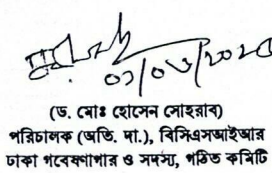 ০১/০৬/২০২৩
(ড. মোঃ হোসেন সোহরাব)
পরিচালক (অতি. দা.), বিসিএসআইআর
ঢাকা গবেষণাগার ও সদস্য, গঠিত কমিটি